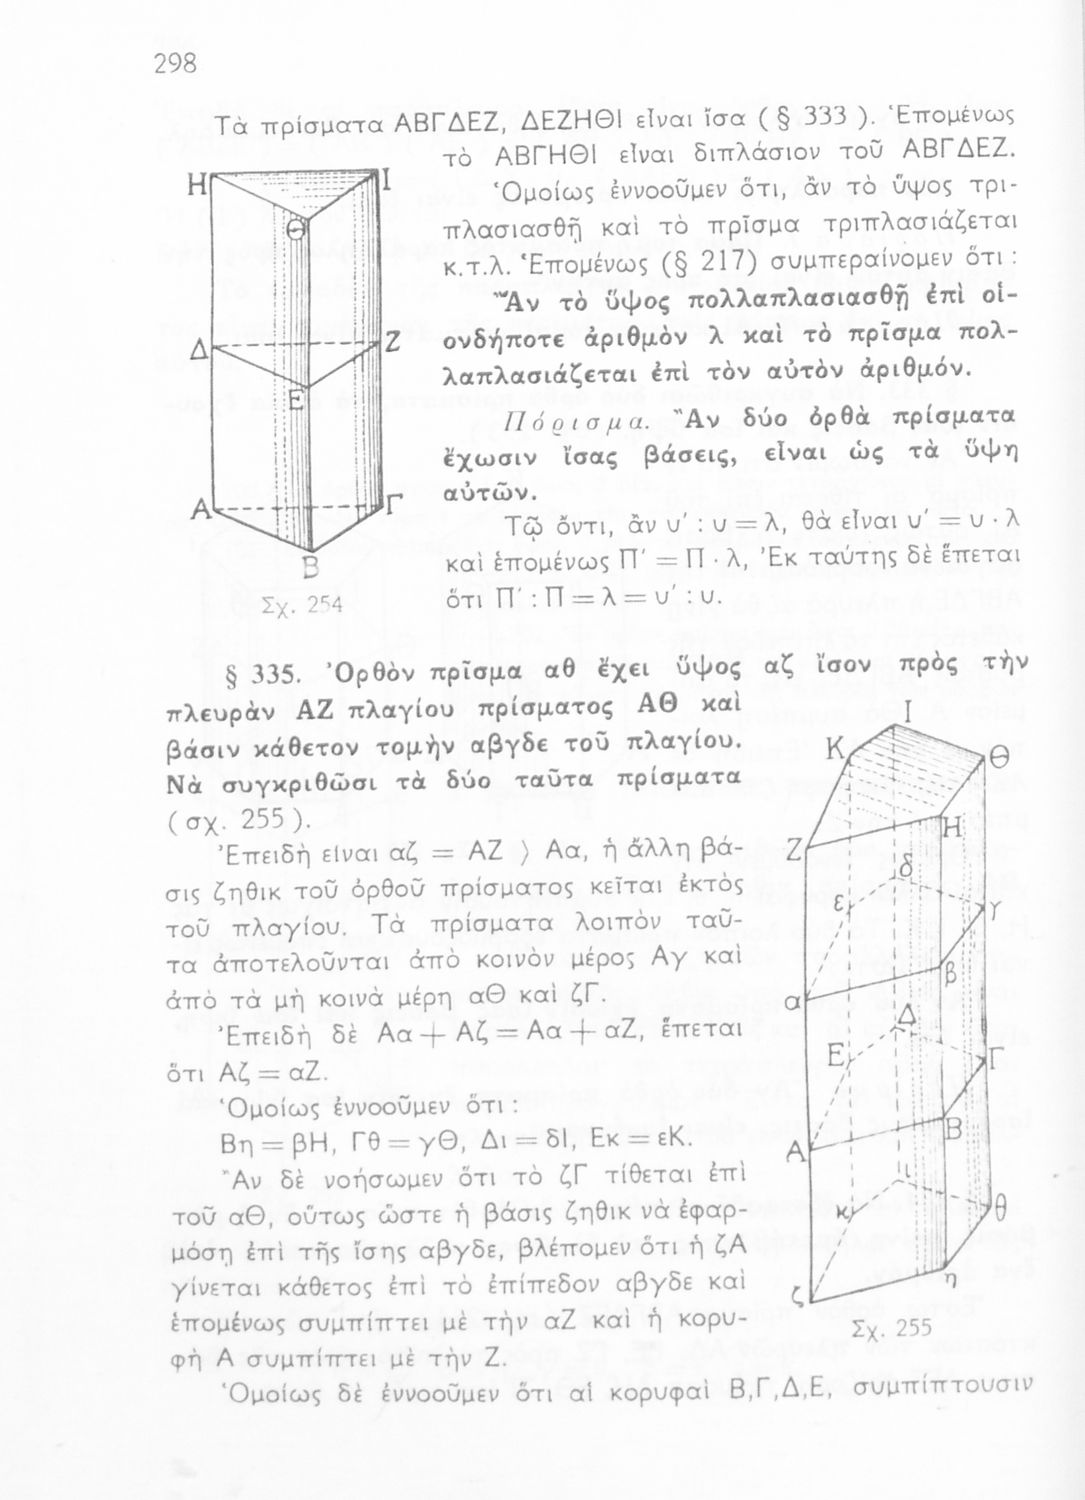 298
Τὰ πρίσματα ΑΒΓΔΕΖ, ΔΕΖΗΘΙ εἶναι ἴσα ( § 333 ). Ἑπομένως
τὸ ΑΒΓΗΘΙ εἶναι διπλάσιον τοῦ ΑΒΓΔΕΖ.
Ὁμοίως ἐννοοῦμεν ὅτι, ἂν τὸ ὕψος τρι-
πλασιασθῇ καὶ τὸ πρῖσμα τριπλασιάζεται
κ.τ.λ. Ἑπομένως (§ 217) συμπεραίνομεν ὅτι :
Ἂν τὸ ὕψος πολλαπλασιασθῇ ἐπὶ οἱ-
ονδήποτε ἀριθμὸν λ καὶ τὸ πρῖσμα πολ-
λαπλασιάζεται ἐπὶ τὸν αὐτὸν ἀριθμόν.
Πόρισμα. Ἂν δύο ὀρθὰ πρίσματα
ἔχωσιν ἴσας βάσεις, εἶναι ὡς τὰ ὕψη
αὐτῶν.
Τῷ ὄντι, ἂν υ′ : υ = λ, θὰ εἶναι υ′ = υ · λ
καὶ ἑπομένως Π′ = Π · λ, Ἐκ ταύτης δὲ ἕπεται
ὅτι Π′ : Π = λ = υ′ : υ.
Η
Ι
Θ
Δ
Ζ
Ε
Α
Γ
Β
Σχ. 254
§ 335. Ὀρθὸν πρῖσμα αθ ἔχει ὕψος αζ ἴσον πρὸς τὴν
πλευρὰν ΑΖ πλαγίου πρίσματος ΑΘ καὶ
βάσιν κάθετον τομὴν αβγδε τοῦ πλαγίου.
Νὰ συγκριθῶσι τὰ δύο ταῦτα πρίσματα
( σχ. 255 ).
Ἐπειδὴ εἶναι αζ = ΑΖ ⟩ Αα, ἡ ἄλλη βά-
σις ζηθικ τοῦ ὀρθοῦ πρίσματος κεῖται ἐκτὸς
τοῦ πλαγίου. Τὰ πρίσματα λοιπὸν ταῦ-
τα ἀποτελοῦνται ἀπὸ κοινὸν μέρος Αγ καὶ
ἀπὸ τὰ μὴ κοινὰ μέρη αΘ καὶ ζΓ.
Ἐπειδὴ δὲ Αα + Αζ = Αα + αΖ, ἕπεται
ὅτι Αζ = αΖ.
Ὁμοίως ἐννοοῦμεν ὅτι :
Βη = βΗ, Γθ = γΘ, Δι = δΙ, Εκ = εΚ.
Ἂν δὲ νοήσωμεν ὅτι τὸ ζΓ τίθεται ἐπὶ
τοῦ αΘ, οὕτως ὥστε ἡ βάσις ζηθικ νὰ ἐφαρ-
μόσῃ ἐπὶ τῆς ἴσης αβγδε, βλέπομεν ὅτι ἡ ζΑ
γίνεται κάθετος ἐπὶ τὸ ἐπίπεδον αβγδε καὶ
ἑπομένως συμπίπτει μὲ τὴν αΖ καὶ ἡ κορυ-
φὴ Α συμπίπτει μὲ τὴν Ζ.
Ὁμοίως δὲ ἐννοοῦμεν ὅτι αἱ κορυφαὶ Β,Γ,Δ,Ε, συμπίπτουσιν
Ι
Κ
Θ
Η
Ζ
δ
ε
γ
β
α
Δ
Ε
Γ
Β
Α
ι
κ
θ
η
ζ
Σχ. 255